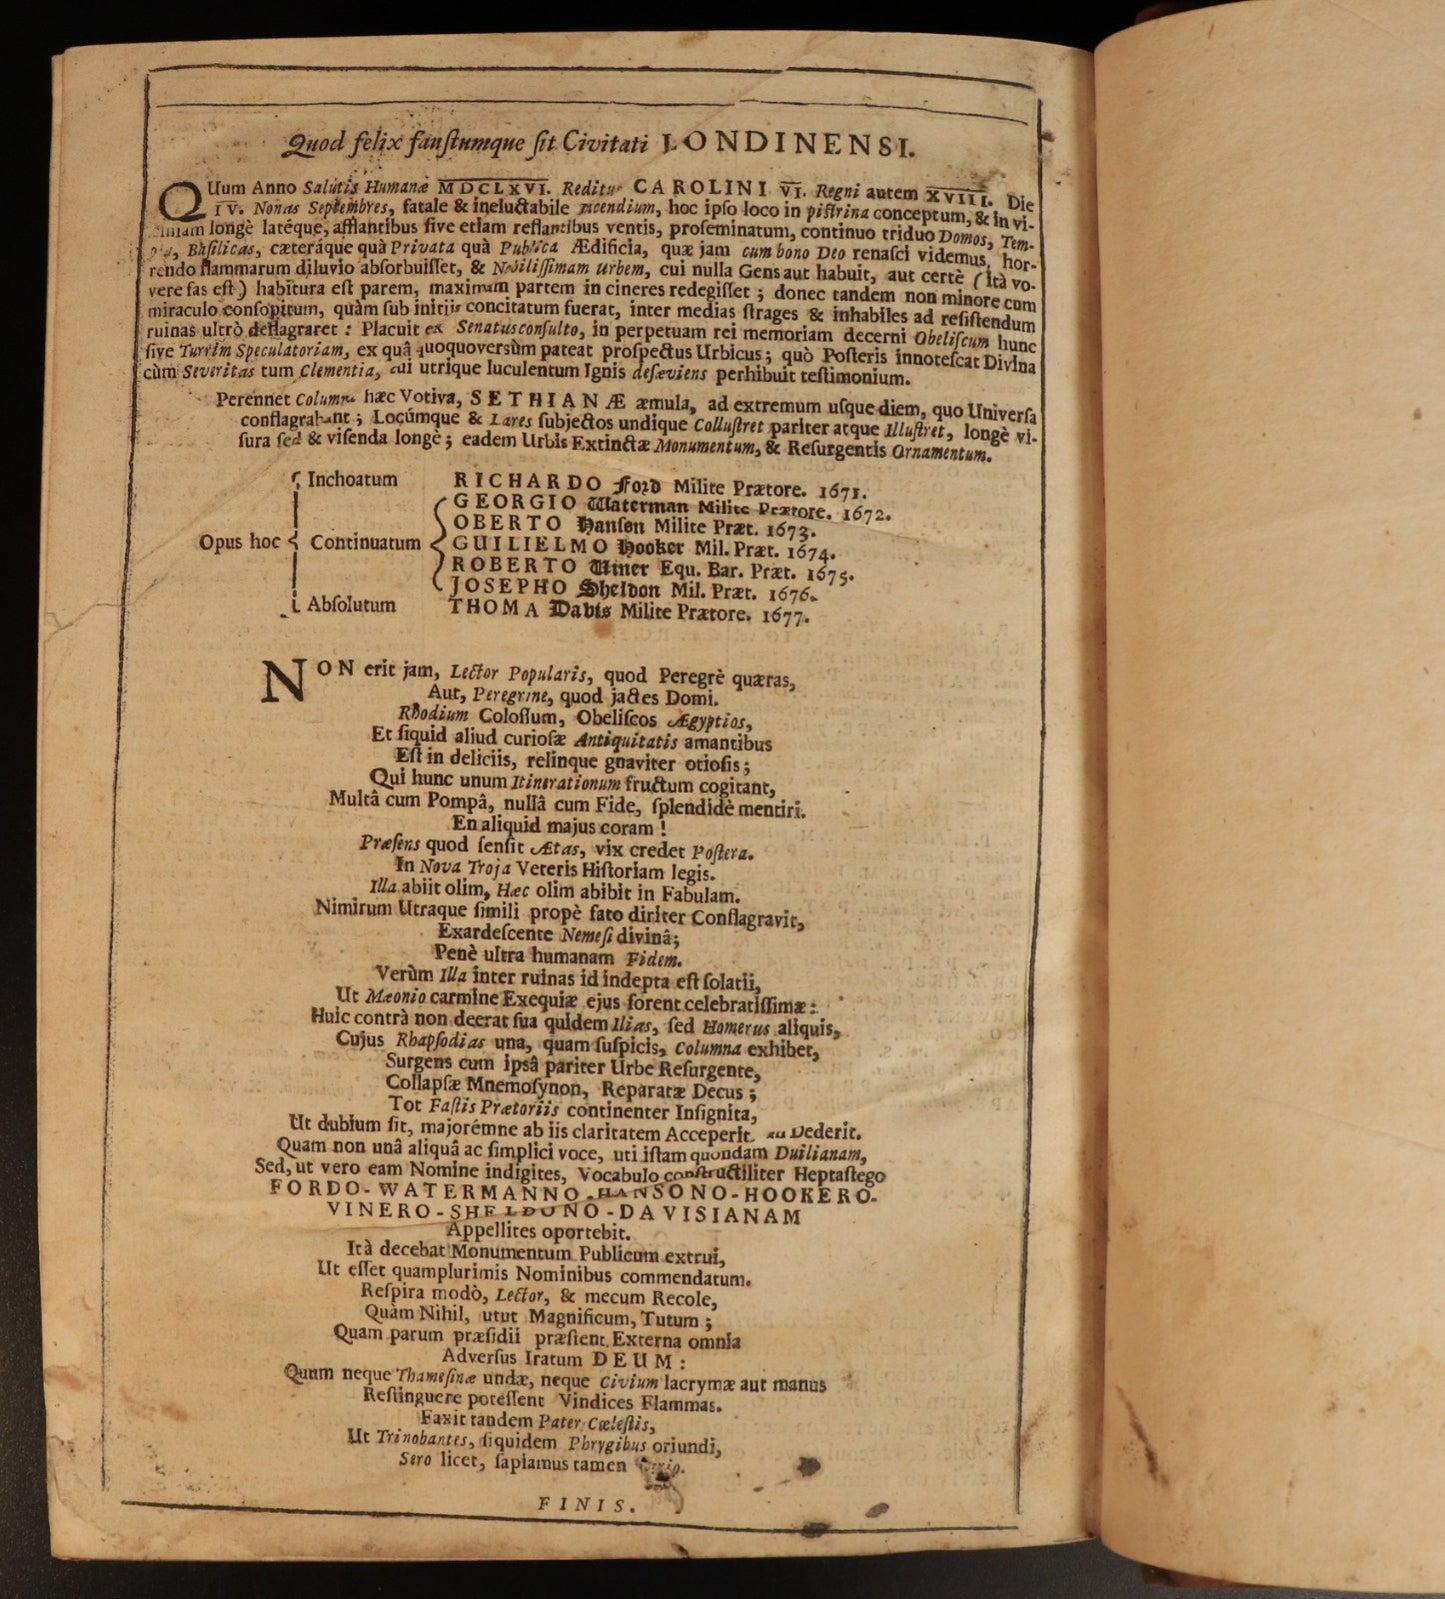 Quod felix fauſtumque ſit Civitati LONDINENSI.
QUum Anno Salutis Humanæ MDCLXVI. Reditus CAROLINI VI. Regni autem XVIII. Die
IV. Nonas Septembres, fatale & ineluctabile incendium, hoc ipſo loco in piſtrina conceptum, & in vi-
ciniam longè latéque, afflantibus ſive etiam reflantibus ventis, proſeminatum, continuo triduo Domos, Tem-
pla, Baſilicas, cæteráque quà Privata quà Publica Ædificia, quæ jam cum bono Deo renaſci videmus, hor-
rendo flammarum diluvio abſorbuiſſet, & Nobiliſſimam Urbem, cui nulla Gens aut habuit, aut certè (ità vo-
vere fas eſt) habitura eſt parem, maximam partem in cineres redegiſſet; donec tandem non minore cum
miraculo conſopitum, quàm ſub initiis concitatum fuerat, inter medias ſtrages & inhabiles ad reſiſtendum
ruinas ultrò deflagraret: Placuit ex Senatusconſulto, in perpetuam rei memoriam decerni Obeliſcum hunc
ſive Turrim Speculatoriam, ex quâ quoquoversùm pateat proſpectus Urbicus; quò Poſteris innoteſcat Divina
cùm Severitas tum Clementia, cui utrique luculentum Ignis deſæviens perhibuit teſtimonium.
Perennet Columna hæc Votiva, SETHIANÆ æmula, ad extremum uſque diem, quo Univerſa
conflagrabunt; Locúmque & Lares ſubjectos undique Colluſtret pariter atque Illuſtret, longè vi-
ſura ſed & viſenda longè; eadem Urbis Extinctæ Monumentum, & Reſurgentis Ornamentum.
Inchoatum RICHARDO Ford Milite Prætore. 1671.
GEORGIO Waterman Milite Prætore. 1672.
OBERTO Hanſon Milite Præt. 1673.
Opus hoc Continuatum GUILIELMO Hooker Mil. Præt. 1674.
ROBERTO Viner Equ. Bar. Præt. 1675.
JOSEPHO Sheldon Mil. Præt. 1676.
Abſolutum THOMA Davis Milite Prætore. 1677.
NON erit jam, Lector Popularis, quod Peregrè quæras,
Aut, Peregrine, quod jactes Domi.
Rhodium Coloſſum, Obeliſcos Ægyptios,
Et ſiquid aliud curioſæ Antiquitatis amantibus
Eſt in deliciis, relinque gnaviter otioſis;
Qui hunc unum Itinerationum fructum cogitant,
Multâ cum Pompâ, nullâ cum Fide, ſplendidè mentiri.
En aliquid majus coram!
Præſens quod ſenſit Ætas, vix credet Poſtera.
In Nova Troja Veteris Hiſtoriam legis.
Illa abiit olim, Hæc olim abibit in Fabulam.
Nimirum Utraque ſimili propè fato diriter Conflagravit,
Exardeſcente Nemeſi divinâ;
Penè ultra humanam Fidem.
Verùm Illa inter ruinas id indepta eſt ſolatii,
Ut Mæonio carmine Exequiæ ejus forent celebratiſſimæ:
Huic contrà non deerat ſua quidem Ilias, ſed Homerus aliquis,
Cujus Rhapſodias una, quam ſuſpicis, Columna exhibet,
Surgens cum ipsâ pariter Urbe Reſurgente,
Collapſæ Mnemoſynon, Reparatæ Decus;
Tot Faſtis Prætoriis continenter Inſignita,
Ut dubium ſit, majorémne ab iis claritatem Acceperit an Dederit.
Quam non unâ aliquâ ac ſimplici voce, uti iſtam quondam Duilianam,
Sed, ut vero eam Nomine indigites, Vocabulo conſtructiliter Heptaſtego
FORDO-WATERMANNO-HANSONO-HOOKERO-
VINERO-SHELDONO-DAVISIANAM
Appellites oportebit.
Ità decebat Monumentum Publicum extrui,
Ut eſſet quamplurimis Nominibus commendatum.
Reſpira modò, Lector, & mecum Recole,
Quàm Nihil, utut Magnificum, Tutum;
Quam parum præſidii præſtent Externa omnia
Adverſus Iratum DEUM:
Quum neque Thameſinæ undæ, neque Civium lacrymæ aut manus
Reſtinguere poteſſent Vindices Flammas.
Faxit tandem Pater Cœleſtis,
Ut Trinobantes, ſiquidem Phrygibus oriundi,
Sero licet, ſapiamus tamen
FINIS.